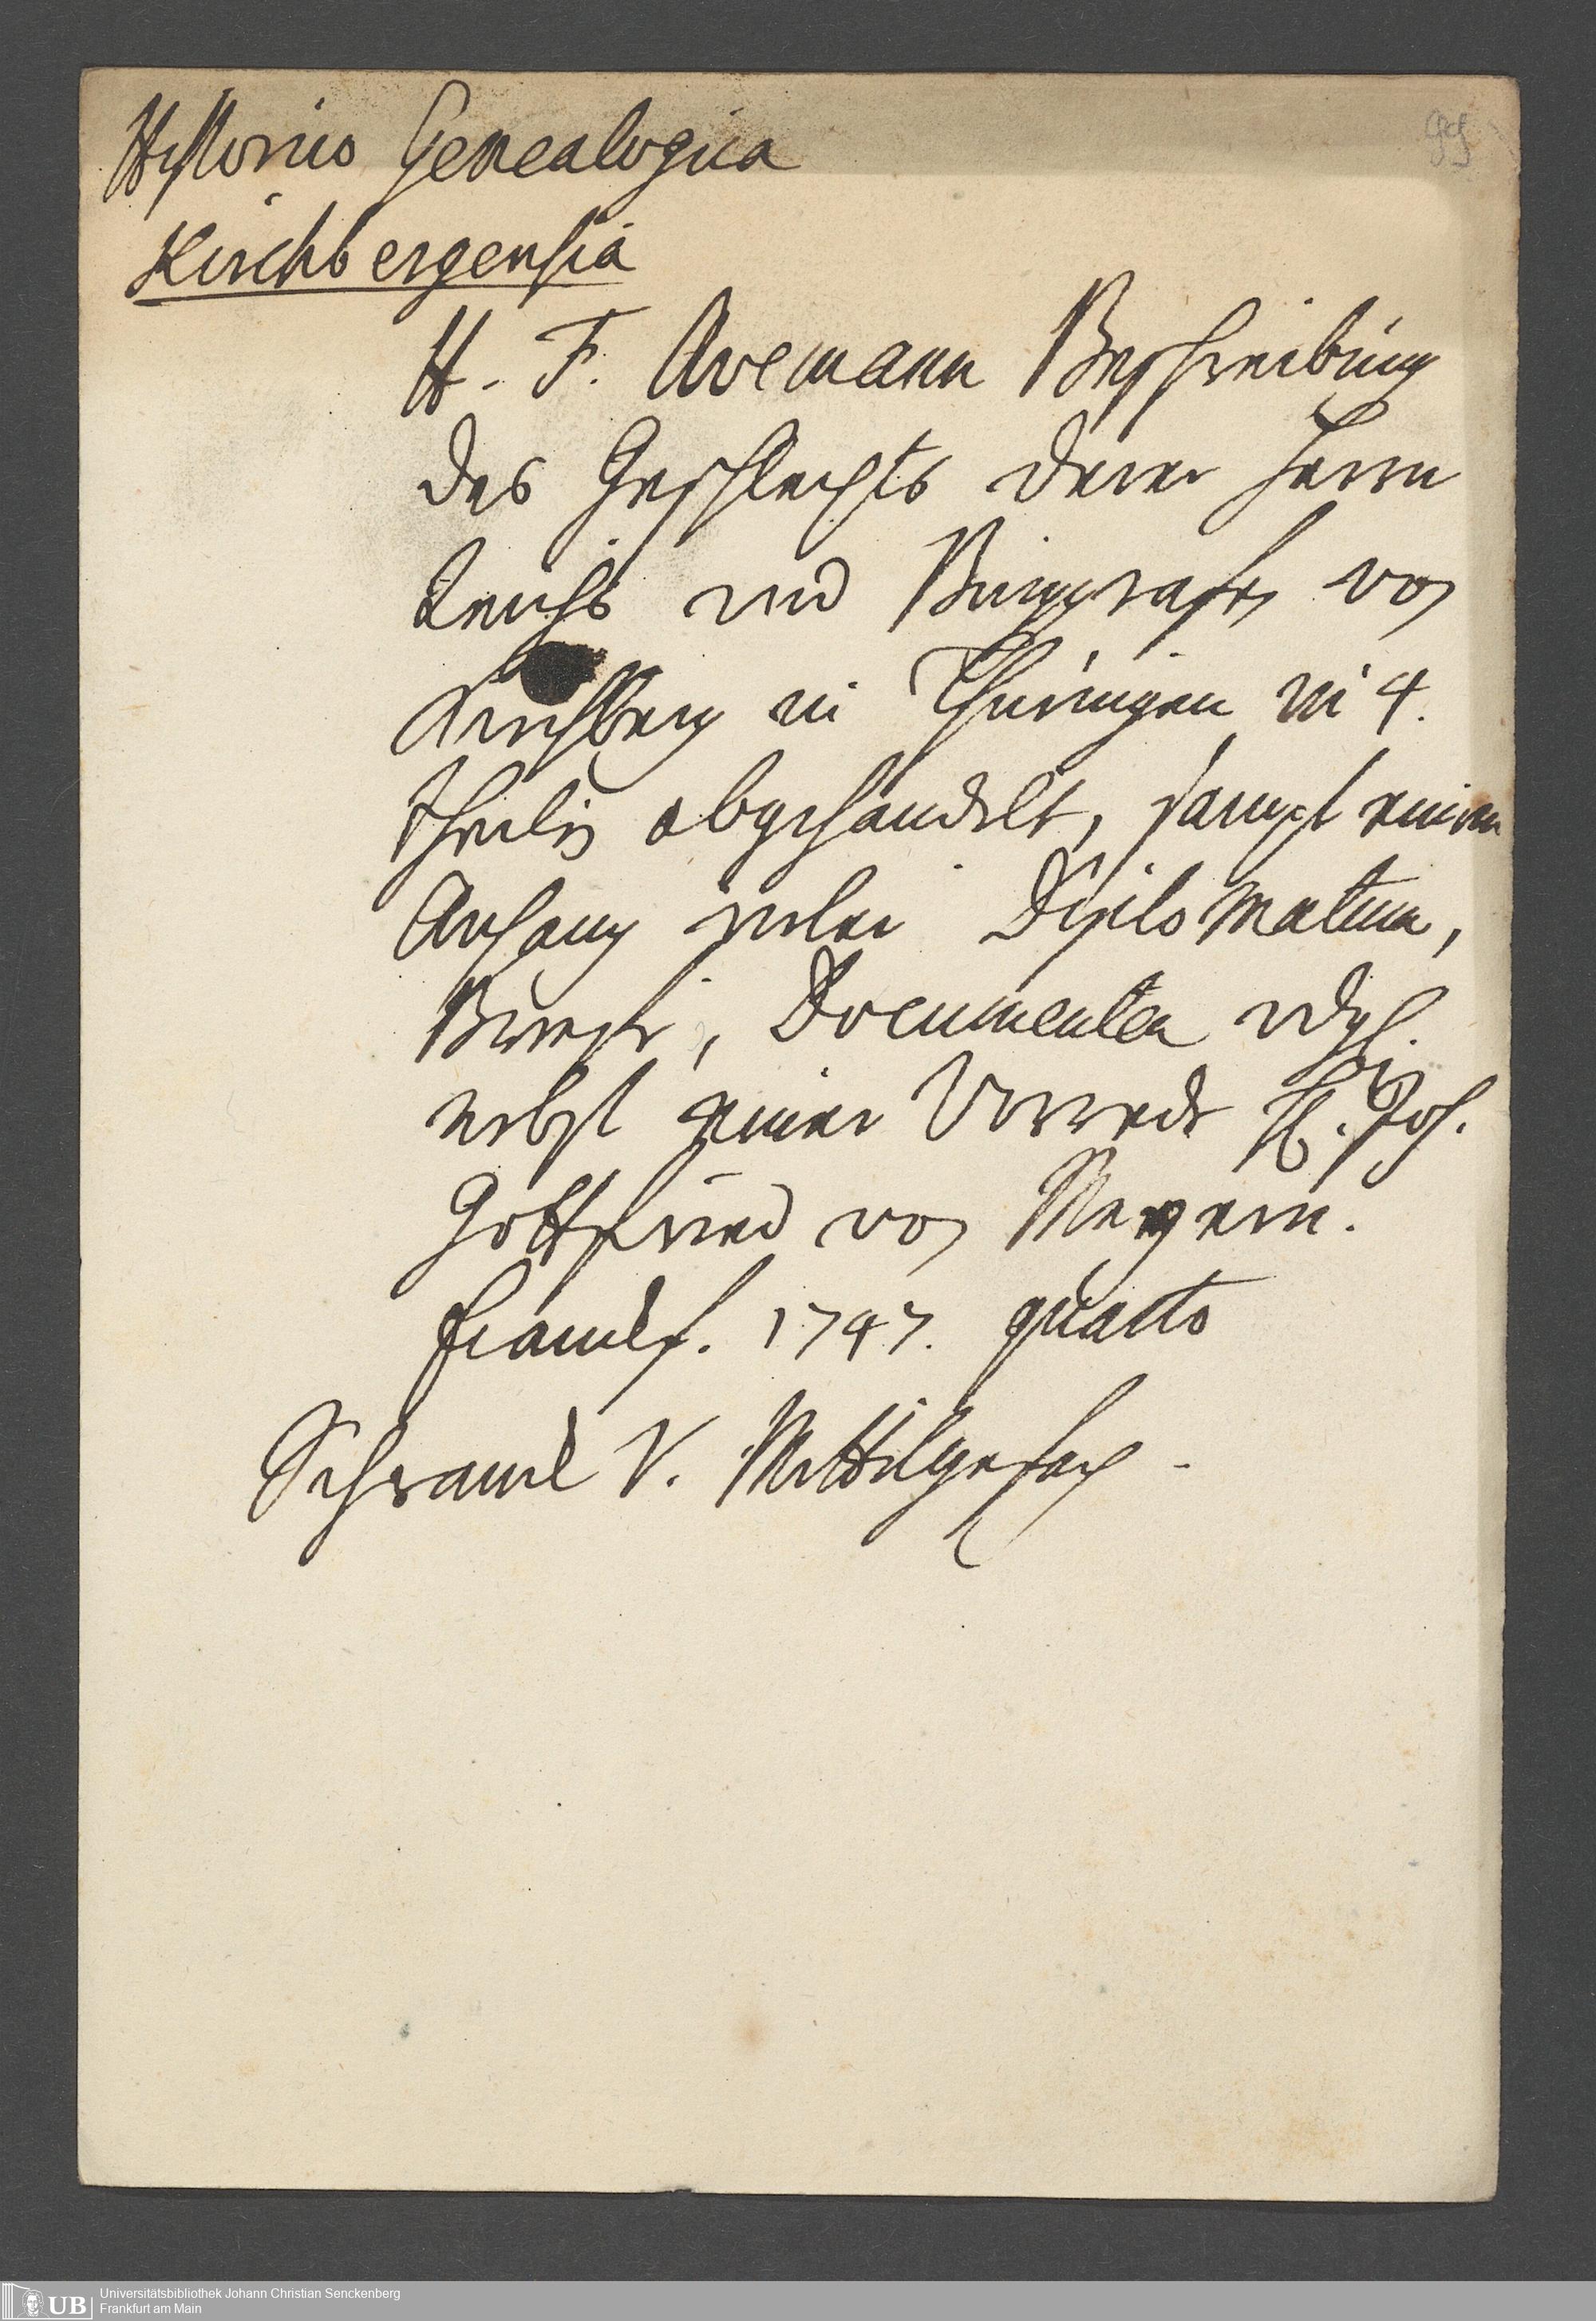 99
Historico Genealogica
Kirchbergensia
H. F. Avemann Beschreibung
des Geschlechts derer Herrn
Reichs und Burggrafen von
Kirchberg in Thüringen in 4.
theilen abgehandelt, sampt einem
Anhang vieler Diplomatum,
Briefe, Documenten u dgl.
nebst einer Vorrede H. Joh.
Gottfried von Meyern.
Francf. 1747. quarto
Schranck V. Mittelgefach
UB Universitätsbibliothek Johann Christian Senckenberg
Frankfurt am Main